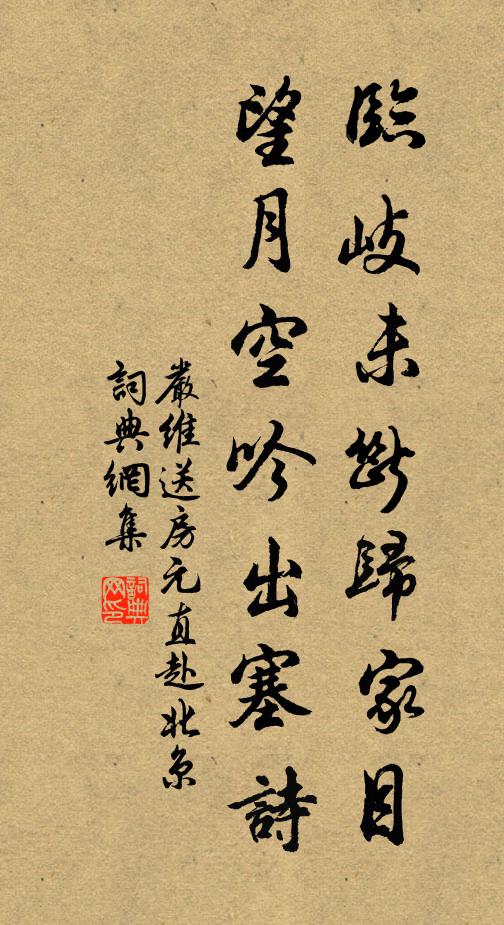 臨岐未斷歸家目
望月空吟出塞詩
嚴維送房元直赴北京
詞典網集
詞典
网印